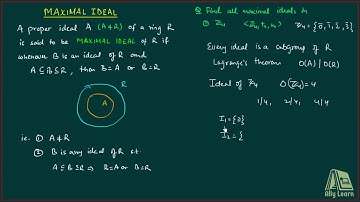 MAXIMAL IDEAL
A proper ideal A (A≠R) of a ring R
is said to be MAXIMAL IDEAL of R if
whenever B is an ideal of R and
A ⊆ B ⊆ R, then B=A or B=R
R
A
ie. ① A≠R
② B is any ideal of R s.t.
A ⊆ B ⊆ R ⇒ B=A or B=R
Q Find all maximal ideals in
① Z₄ <Z₄, +₄, ×₄> Z₄ = {0̄, 1̄, 2̄, 3̄}
Every ideal is a subgroup of R
Lagrange's theorem O(A) | O(R)
Ideal of Z₄ O(Z₄)=4
1/4, 2/4, 4/4
I₁ = {0}
I₂ = {
Ally Learn